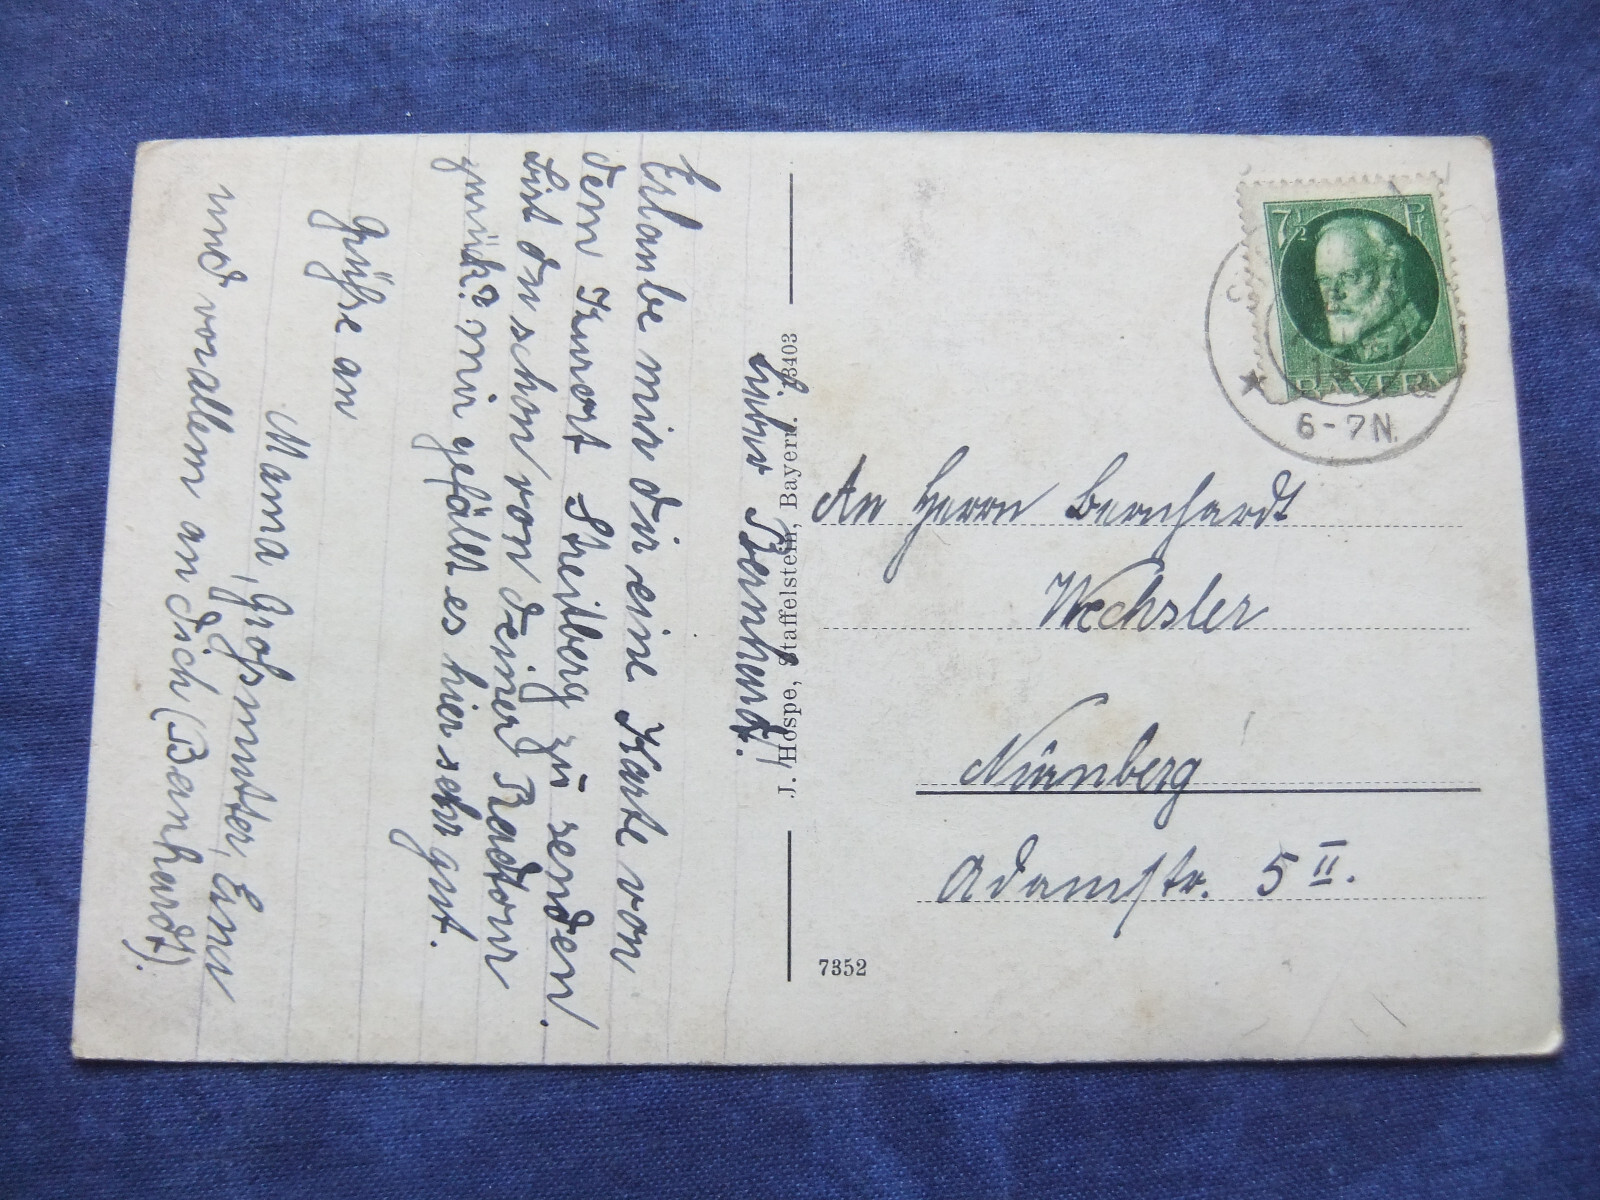 Lieber Bernhard!
Erlaube mir dir eine Karte von
dem Kurort Streitberg zu senden.
bist du schon von deiner Radtour
zurück? mir gefällt es hier sehr gut.
Grüße an
Mama, Großmutter, Erna
und vorallem an dich (Bernhardt).
J. Hospe, Staffelstein, Bayern. 3403
7352
7½ Pf
BAYERN
6-7N.
An Herrn Bernhardt
Wechsler
Nürnberg
Adamstr. 5 II.